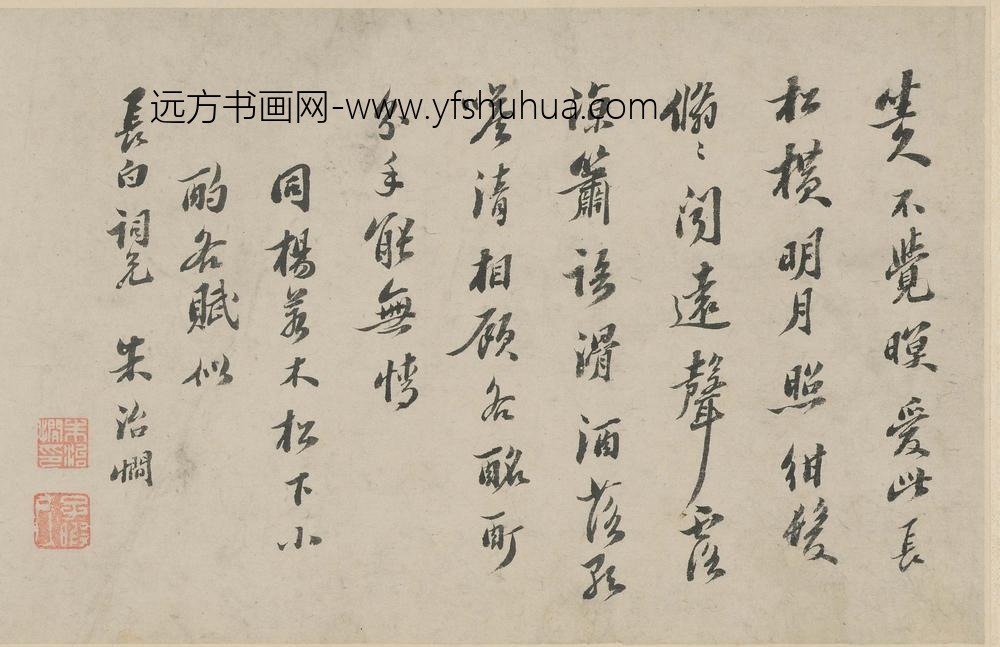 远方书画网-www.yfshuhua.com
坐久不覺暝愛此長
松橫明月照紺髮
翛〻聞遠聲露
涼簫語滑酒落
清相顧各酩酊
分手能無情
同楊若木松下小
酌各賦似
長白詞兄 朱治憪
朱治憪印